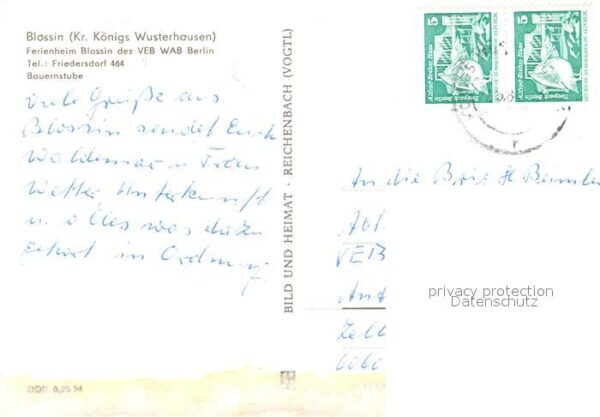 Blossin (Kr. Königs Wusterhausen)
Ferienheim Blossin des VEB WAB Berlin
Tel.: Friedersdorf 464
Bauernstube
Viele Grüße aus
Blossin sendet Euch
Waldemar u. Frau
Wetter Unterkunft
u. alles was dazu
gehört in Ordnung
DDR 0,25 M
BILD UND HEIMAT · REICHENBACH (VOGTL)
5
Alfred-Brehm-Haus
Tierpark Berlin
5
Alfred-Brehm-Haus
Tierpark Berlin
An die Brig. H.
Abt.
VEB
Zell
6060
privacy protection
Datenschutz